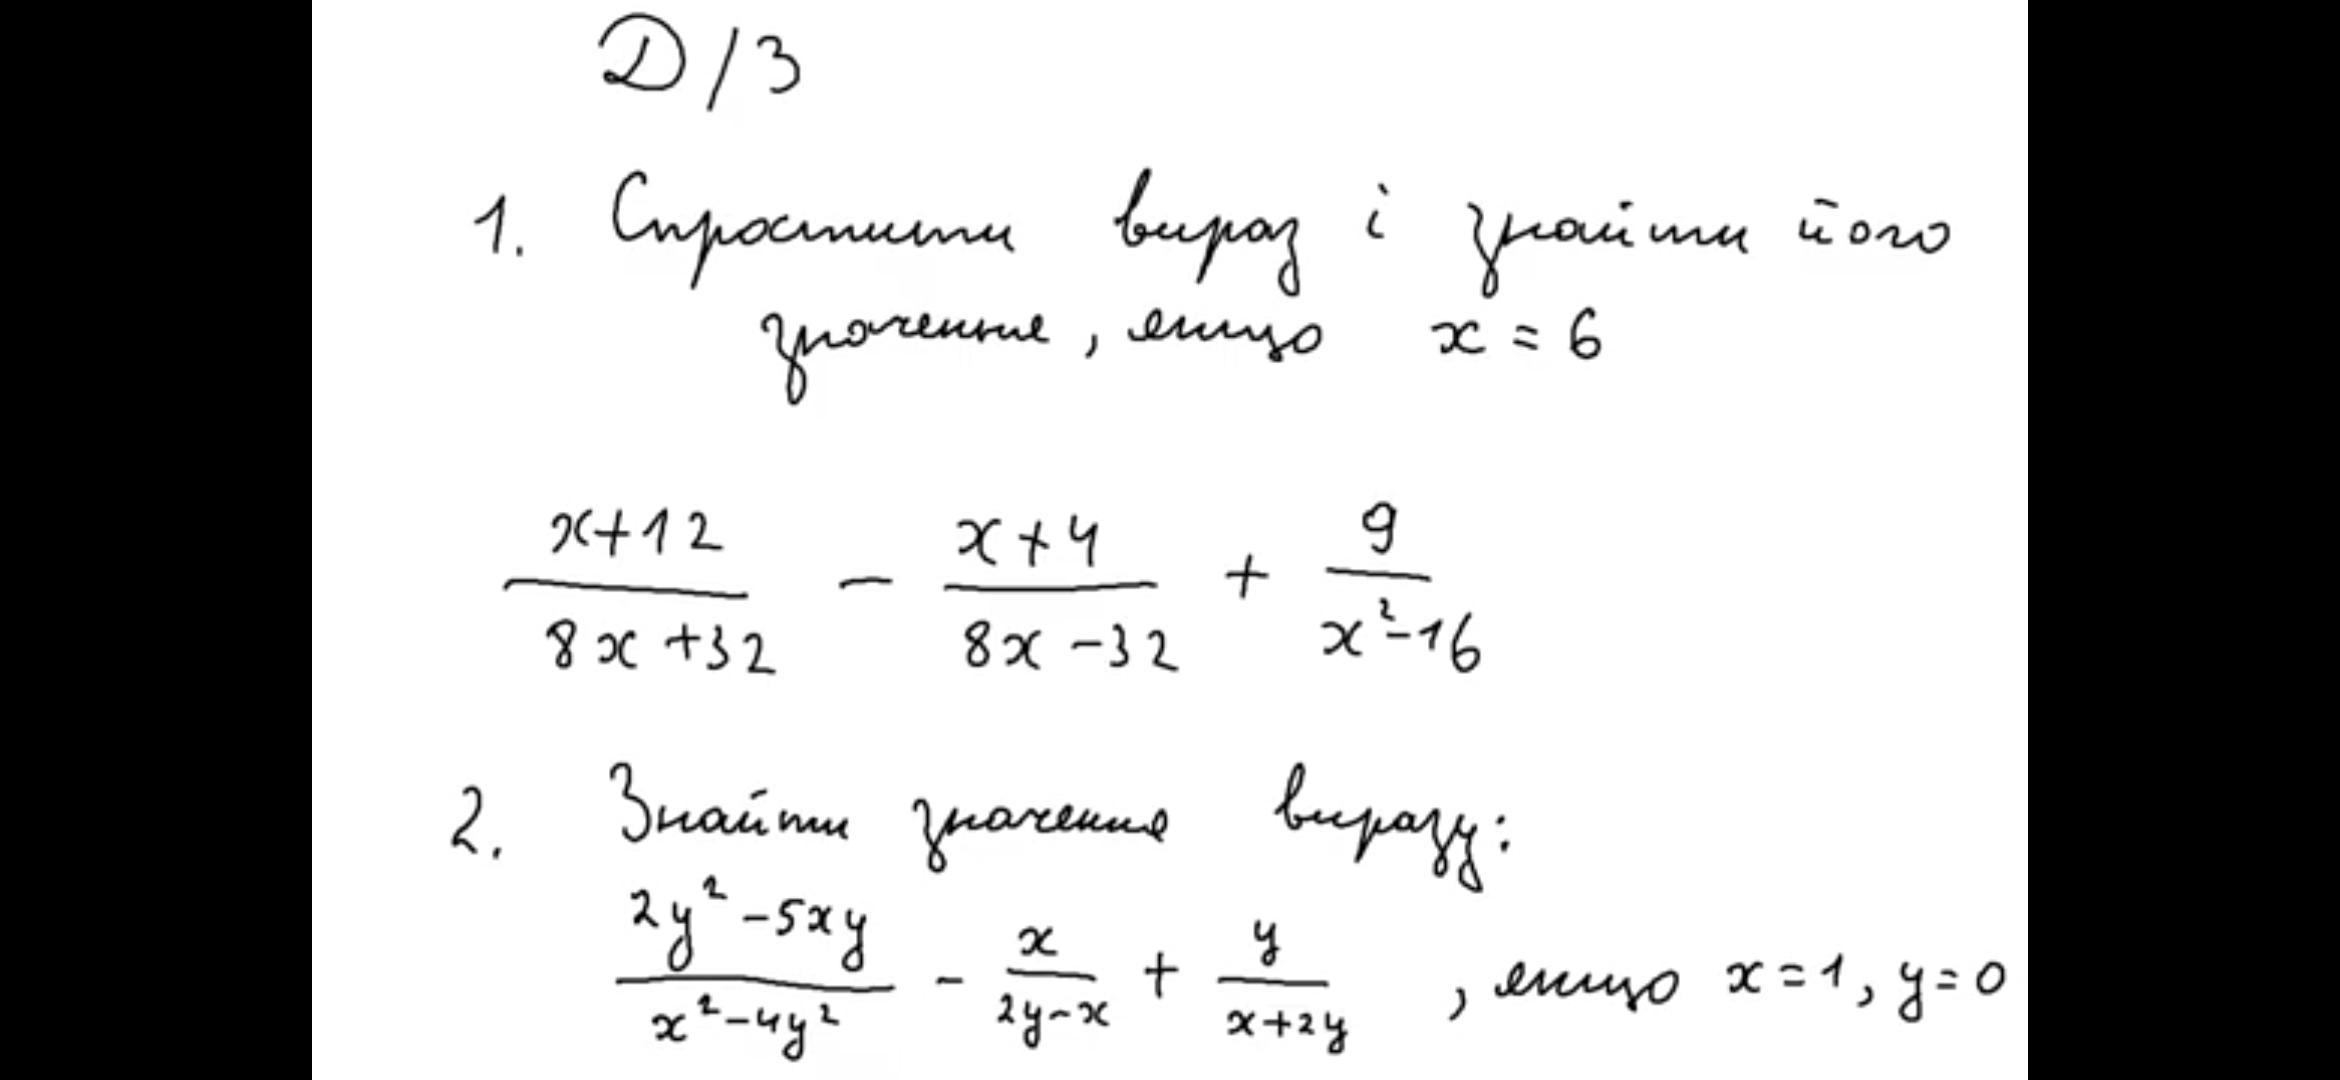 Д/З
1. Спростити вираз і знайти його
значення, якщо x = 6
(x+12)/(8x+32) - (x+4)/(8x-32) + 9/(x²-16)
2. Знайти значення виразу:
(2y²-5xy)/(x²-4y²) - x/(2y-x) + y/(x+2y), якщо x=1, y=0